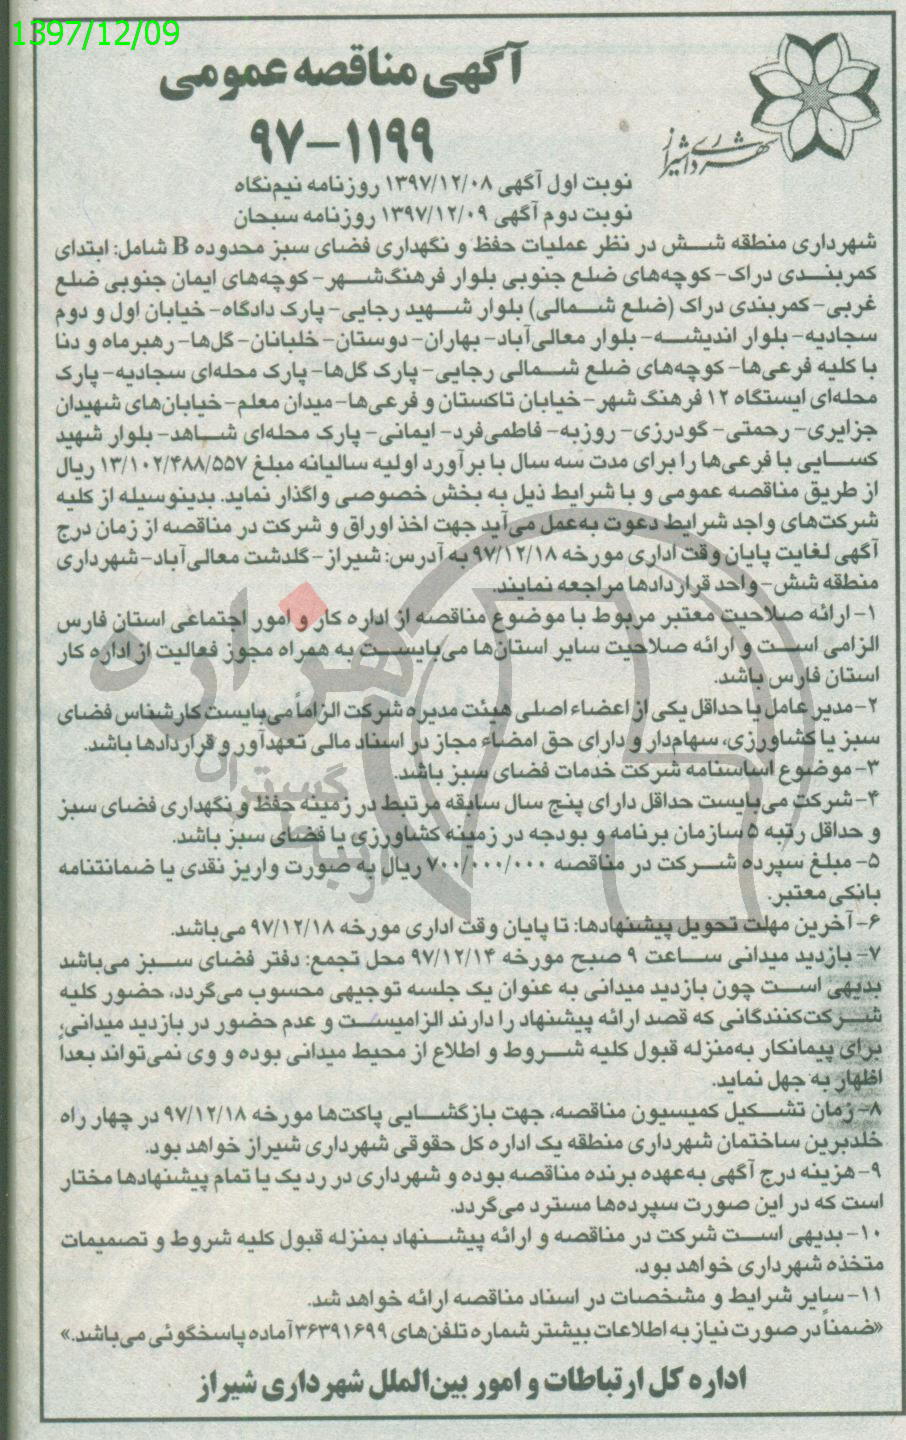 1397/12/09
آگهی مناقصه عمومی
۹۷-۱۱۹۹
شهرداری شیراز
نوبت اول آگهی ۱۳۹۷/۱۲/۰۸ روزنامه نیم‌نگاه
نوبت دوم آگهی ۱۳۹۷/۱۲/۰۹ روزنامه سبحان
شهرداری منطقه شش در نظر عملیات حفظ و نگهداری فضای سبز محدوده B شامل: ابتدای
کمربندی دراک- کوچه‌های ضلع جنوبی بلوار فرهنگ‌شهر- کوچه‌های ایمان جنوبی ضلع
غربی- کمربندی دراک (ضلع شمالی) بلوار شهید رجایی- پارک دادگاه- خیابان اول و دوم
سجادیه- بلوار اندیشه- بلوار معالی‌آباد- بهاران- دوستان- خلبانان- گل‌ها- رهبرماه و دنا
با کلیه فرعی‌ها- کوچه‌های ضلع شمالی رجایی- پارک گل‌ها- پارک محله‌ای سجادیه- پارک
محله‌ای ایستگاه ۱۲ فرهنگ شهر- خیابان تاکستان و فرعی‌ها- میدان معلم- خیابان‌های شهیدان
جزایری- رحمتی- گودرزی- روزبه- فاطمی‌فرد- ایمانی- پارک محله‌ای شاهد- بلوار شهید
کسایی با فرعی‌ها را برای مدت سه سال با برآورد اولیه سالیانه مبلغ ۱۳/۱۰۲/۴۸۸/۵۵۷ ریال
از طریق مناقصه عمومی و با شرایط ذیل به بخش خصوصی واگذار نماید. بدینوسیله از کلیه
شرکت‌های واجد شرایط دعوت به‌عمل می‌آید جهت اخذ اوراق و شرکت در مناقصه از زمان درج
آگهی لغایت پایان وقت اداری مورخه ۹۷/۱۲/۱۸ به آدرس: شیراز- گلدشت معالی‌آباد- شهرداری
منطقه شش- واحد قراردادها مراجعه نمایند.
۱- ارائه صلاحیت معتبر مربوط با موضوع مناقصه از اداره کار و امور اجتماعی استان فارس
الزامی است و ارائه صلاحیت سایر استان‌ها می‌بایست به همراه مجوز فعالیت از اداره کار
استان فارس باشد.
۲- مدیر عامل یا حداقل یکی از اعضاء اصلی هیئت مدیره شرکت الزاماً می‌بایست کارشناس فضای
سبز یا کشاورزی، سهام‌دار و دارای حق امضاء مجاز در اسناد مالی تعهدآور و قراردادها باشد.
۳- موضوع اساسنامه شرکت خدمات فضای سبز باشد.
۴- شرکت می‌بایست حداقل دارای پنج سال سابقه مرتبط در زمینه حفظ و نگهداری فضای سبز
و حداقل رتبه ۵ سازمان برنامه و بودجه در زمینه کشاورزی یا فضای سبز باشد.
۵- مبلغ سپرده شرکت در مناقصه ۷۰۰/۰۰۰/۰۰۰ ریال به صورت واریز نقدی یا ضمانتنامه
بانکی معتبر.
۶- آخرین مهلت تحویل پیشنهادها: تا پایان وقت اداری مورخه ۹۷/۱۲/۱۸ می‌باشد.
۷- بازدید میدانی ساعت ۹ صبح مورخه ۹۷/۱۲/۱۴ محل تجمع: دفتر فضای سبز می‌باشد
بدیهی است چون بازدید میدانی به عنوان یک جلسه توجیهی محسوب می‌گردد، حضور کلیه
شرکت‌کنندگانی که قصد ارائه پیشنهاد را دارند الزامیست و عدم حضور در بازدید میدانی،
برای پیمانکار به‌منزله قبول کلیه شروط و اطلاع از محیط میدانی بوده و وی نمی‌تواند بعداً
اظهار به جهل نماید.
۸- زمان تشکیل کمیسیون مناقصه، جهت بازگشایی پاکت‌ها مورخه ۹۷/۱۲/۱۸ در چهار راه
خلدبرین ساختمان شهرداری منطقه یک اداره کل حقوقی شهرداری شیراز خواهد بود.
۹- هزینه درج آگهی به‌عهده برنده مناقصه بوده و شهرداری در رد یک یا تمام پیشنهادها مختار
است که در این صورت سپرده‌ها مسترد می‌گردد.
۱۰- بدیهی است شرکت در مناقصه و ارائه پیشنهاد بمنزله قبول کلیه شروط و تصمیمات
متخذه شهرداری خواهد بود.
۱۱- سایر شرایط و مشخصات در اسناد مناقصه ارائه خواهد شد.
«ضمناً در صورت نیاز به اطلاعات بیشتر شماره تلفن‌های ۳۶۳۹۱۶۹۹ آماده پاسخگوئی می‌باشد.»
اداره کل ارتباطات و امور بین‌الملل شهرداری شیراز
هزاره
گستران